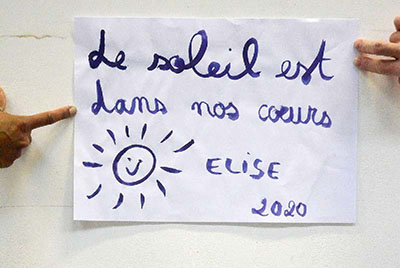 Le soleil est
dans nos cœurs
ELISE
2020